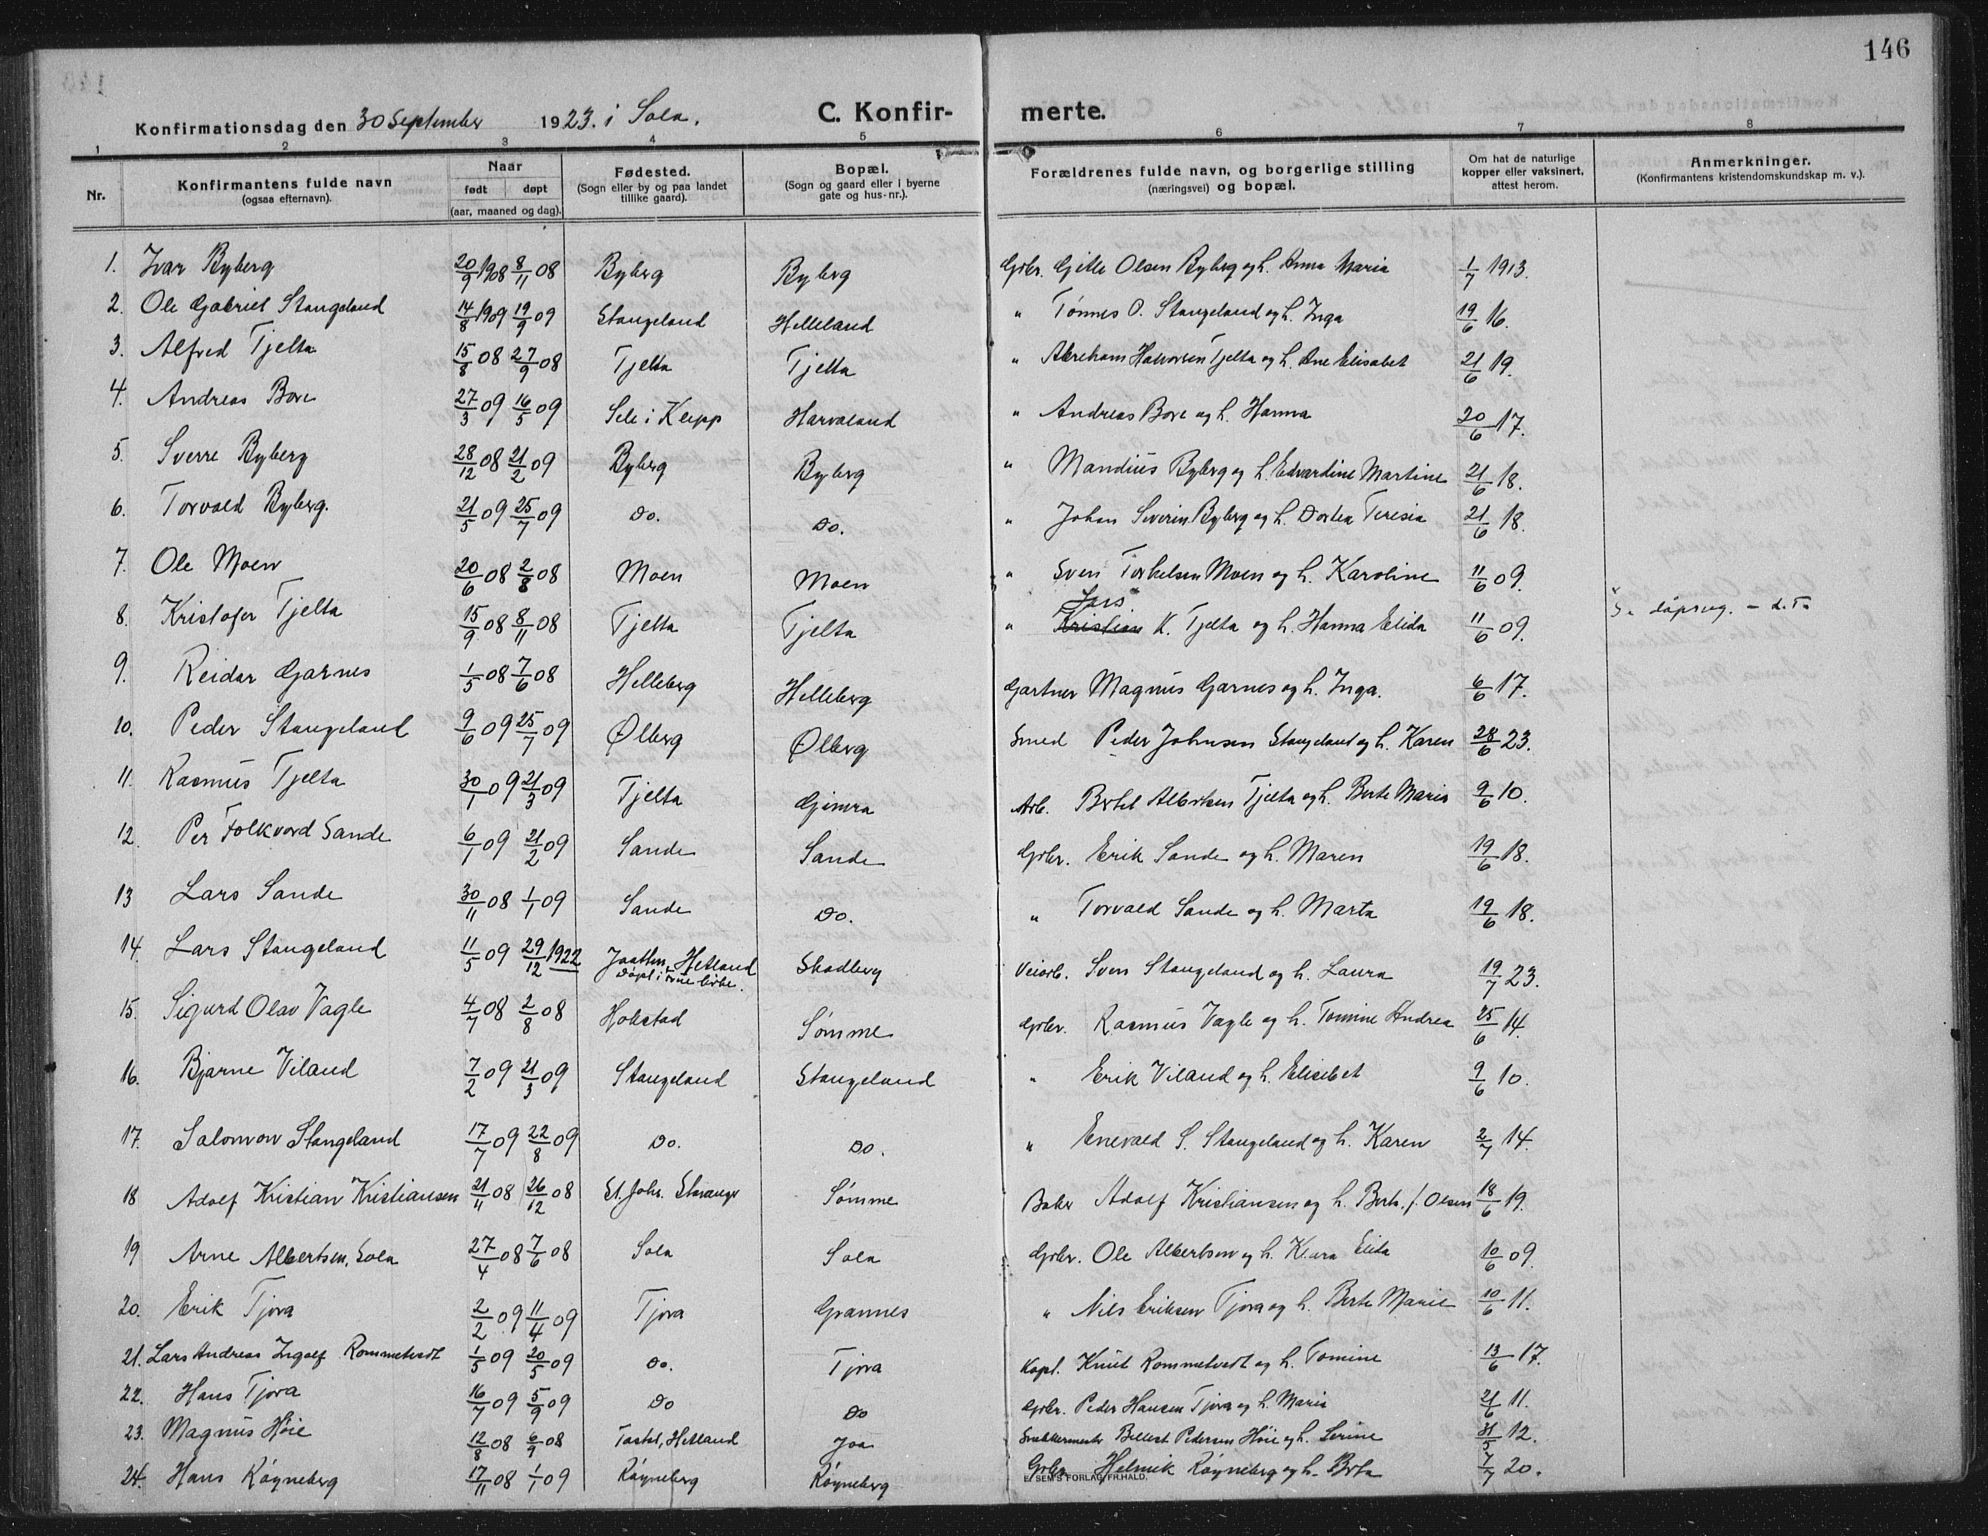 146
Konfirmationsdag den 30 September 1923. i Sola. C. Konfir- merte.
1 2 3 4 5 6 7 8
Nr. Konfirmantens fulde navn (ogsaa efternavn). Naar født døpt (aar, maaned og dag). Fødested. (Sogn eller by og paa landet tillike gaard). Bopæl. (Sogn og gaard eller i byerne gate og hus-nr.). Forældrenes fulde navn, og borgerlige stilling (næringsvei) og bopæl. Om hat de naturlige kopper eller vaksinert, attest herom. Anmerkninger. (Konfirmantens kristendomskundskap m. v.).
1. Ivar Byberg 20/9 1908 8/11 08 Byberg Byberg Gdbr. Gitle Olsen Byberg og h. Anna Maria 1/7 1913.
2. Ole Gabriel Stangeland 14/8 1909 19/9 09 Stangeland Helleland " Tønnes O. Stangeland og h. Inga 19/6 16.
3. Alfred Tjelta 15/8 08 27/9 08 Tjelta Tjelta " Abraham Halvorsen Tjelta og h. Ane Elisabet 21/6 19.
4. Andreas Bore 27/3 09 16/5 09 Sele i Klepp Harvaland " Andreas Bore og h. Hanna 20/6 17.
5. Sverre Byberg 28/12 08 21/2 09 Byberg Byberg " Mandius Byberg og h. Edvardine Martine 21/6 18.
6. Torvald Byberg. 21/5 09 25/7 09 Do. Do. " Johan Severin Byberg og h. Dortea Teresia 21/6 18.
7. Ole Moen 20/6 08 2/8 08 Moen Moen " Sven Torkelsen Moen og h. Karoline 11/6 09.
8. Kristofer Tjelta 15/9 08 8/11 08 Tjelta Tjelta " Kristian Lars K. Tjelta og h. Hanna Elida 11/6 09.
9. Reidar Garnes 1/5 08 7/6 08 Helleberg Helleberg Gartner Magnus Garnes og h. Inga. 6/6 17.
10. Peder Stangeland 9/6 09 25/7 09 Ølberg Ølberg Smed Peder Johnsen Stangeland og h. Karen 28/6 23.
11. Rasmus Tjelta 30/1 09 21/3 09 Tjelta Gimra Arb. Bertel Albertsen Tjelta og h. Berte Maria 9/6 10.
12. Per Folkvord Sande 6/1 09 21/2 09 Sande Sande Gdbr. Erik Sande og h. Maren 19/6 18.
13 Lars Sande 30/11 08 1/1 09 Sande Do. " Torvald Sande og h. Marta 19/6 18.
14. Lars Stangeland 11/5 09 29/12 1922 Jaatten, Hetland Døpt i Skadberg Veiarb. Sven Stangeland og h. Laura 19/7 23.
15. Sigurd Olav Vagle 4/7 08 2/8 08 Hobstad Sømme Gdbr. Rasmus Vagle og h. Tomine Andrea 25/6 14.
16. Bjarne Viland 7/2 09 21/3 09 Stangeland Stangeland " Erik Viland og h. Elisebet 9/6 10.
17. Salomon Stangeland 17/7 09 22/8 09 Do. Do. " Enevald S. Stangeland og h. Karen 2/7 14.
18 Adolf Kristian Kristiansen 21/11 08 26/12 08 St. Joh. Stavanger Sømme Baker Adolf Kristiansen og h. Berta f. Olsen 18/6 19.
19 Arne Albertsen, Sola 27/4 08 7/6 08 Sola Sola Gdbr. Ole Albertsen og h. Klara Elida 10/6 09.
20. Erik Tjora 2/2 09 11/4 09 Tjora Grannes " Nils Eriksen Tjora og h. Berte Marie 10/6 11.
21. Lars Andreas Ingolf Rommetvedt 1/5 09 20/5 09 Do. Tjora Kapt. Knut Rommetvedt og h. Tomine 13/6 17.
22. Hans Tjora 16/7 09 5/9 09 Do Do Gdbr. Peder Hansen Tjora og h. Maria 21/6 11.
23. Magnus Høie 12/8 08 6/9 08 Tastel, Hetland Joa Snekkermester Bellest Pedersen Høie og h. Serine 31/5 12.
24. Hans Røyneberg 17/11 08 1/1 09 Røyneberg Røyneberg Gdbr. Helmik Røyneberg og h. Berta 7/7 20.
E. SEM'S FORLAG, FR.HALD.